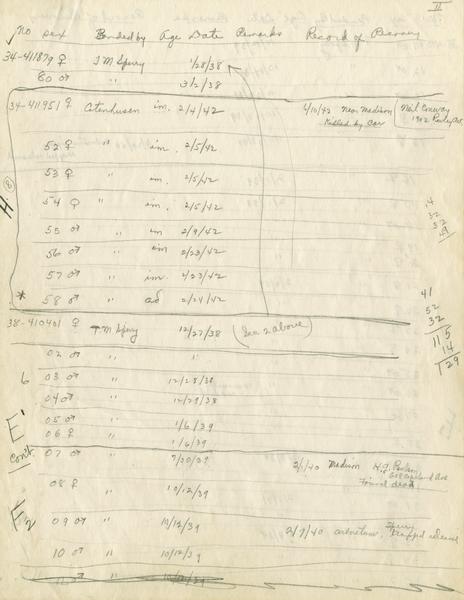 II
No Sex Banded by Age Date Remarks Record of Recovery
34-411879 ♀ T M Sperry 1/28/38
80 ♂ " 3/2/38
34-411951 ♀ Catenhusen im. 2/4/42 4/10/42 Near Madison Neil Conway
Killed by Car
52 ♀ " im. 2/5/42
53 ♀ " im. 2/5/42
8
54 ♀ " im. 2/5/42
55 ♂ " im 2/9/42
56 ♂ " im 2/23/42
57 ♂ " im. 2/23/42
* 58 ♂ " ad 2/24/42
14
32
52
49
41
52
32
115
14
129
38-410401 ♀ T M Sperry 12/27/38 (See 2 above)
02 ♂ " "
6 03 ♂ " 12/28/38
04 ♂ " 12/29/38
E' 05 ♂ " 1/6/39
06 ♀ " 1/6/39
Con't
07 ♂ " 9/20/39 2/1/40 Madison
Found dead
08 ♀ " 10/12/39
E2
09 ♂ " 10/12/39 2/9/40 arboretum, Sperry
Trapped released
10 ♂ " 10/12/39